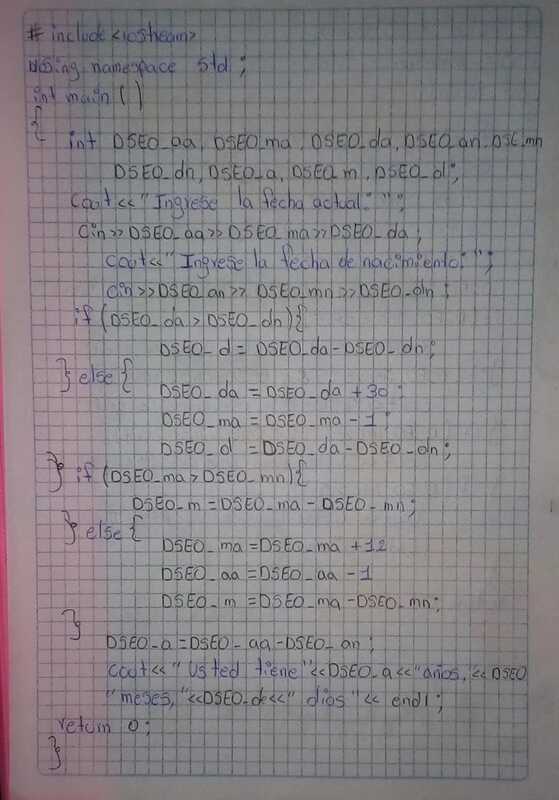 # include <iostream>
using namespace std ;
int main ( )
{
int DSEO_aa, DSEO_ma, DSEO_da, DSEO_an DSE_mn
DSEO_dn, DSEO_a, DSEO_m, DSEO_d;
cout << "Ingrese la fecha actual: ";
cin >> DSEO_aa >> DSEO_ma >> DSEO_da ;
cout << "Ingrese la fecha de nacimiento: ";
cin >> DSEO_an >> DSEO_mn >> DSEO_dn ;
if (DSEO_da > DSEO_dn) {
DSEO_d = DSEO_da - DSEO_dn ;
} else {
DSEO_da = DSEO_da + 30 ;
DSEO_ma = DSEO_ma - 1 ;
DSEO_d = DSEO_da - DSEO_dn ;
} if (DSEO_ma > DSEO_mn) {
DSEO_m = DSEO_ma - DSEO_mn ;
} else {
DSEO_ma = DSEO_ma + 12
DSEO_aa = DSEO_aa - 1
DSEO_m = DSEO_ma - DSEO_mn ;
}
DSEO_a = DSEO_aa - DSEO_an ;
cout << " Usted tiene " << DSEO_a << "años, << DSEO
"meses, " << DSEO_d << " dias " << endl ;
return 0 ;
}